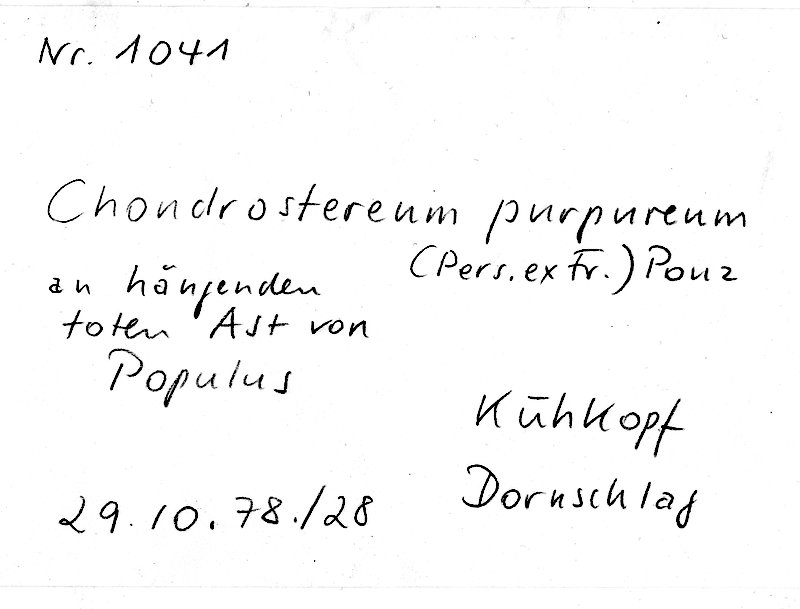 Nr. 1041
Chondrostereum purpureum
(Pers. ex Fr.) Pouz
an hängenden
toten Ast von
Populus
Kühkopf
Dornschlag
29.10.78./28